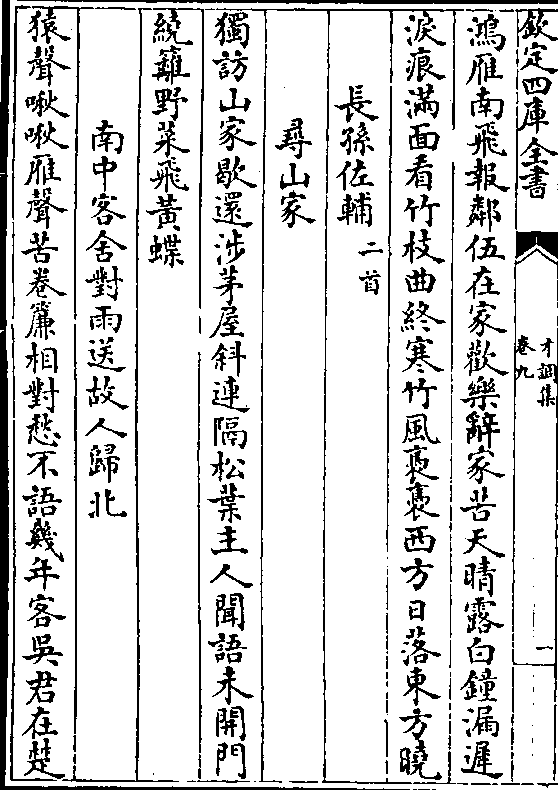 欽定四庫全書
才調集
卷九
一
鴻雁南飛報鄰伍在家歡樂辭家苦天晴露白鐘漏遲
淚痕滿面看竹枝曲終寒竹風裊裊西方日落東方曉
長孫佐輔二首
尋山家
獨訪山家歇還涉茅屋斜連隔松葉主人聞語未開門
繞籬野菜飛黃蝶
南中客舍對雨送故人歸北
猿聲啾啾雁聲苦卷簾相對愁不語幾年客吳君在楚